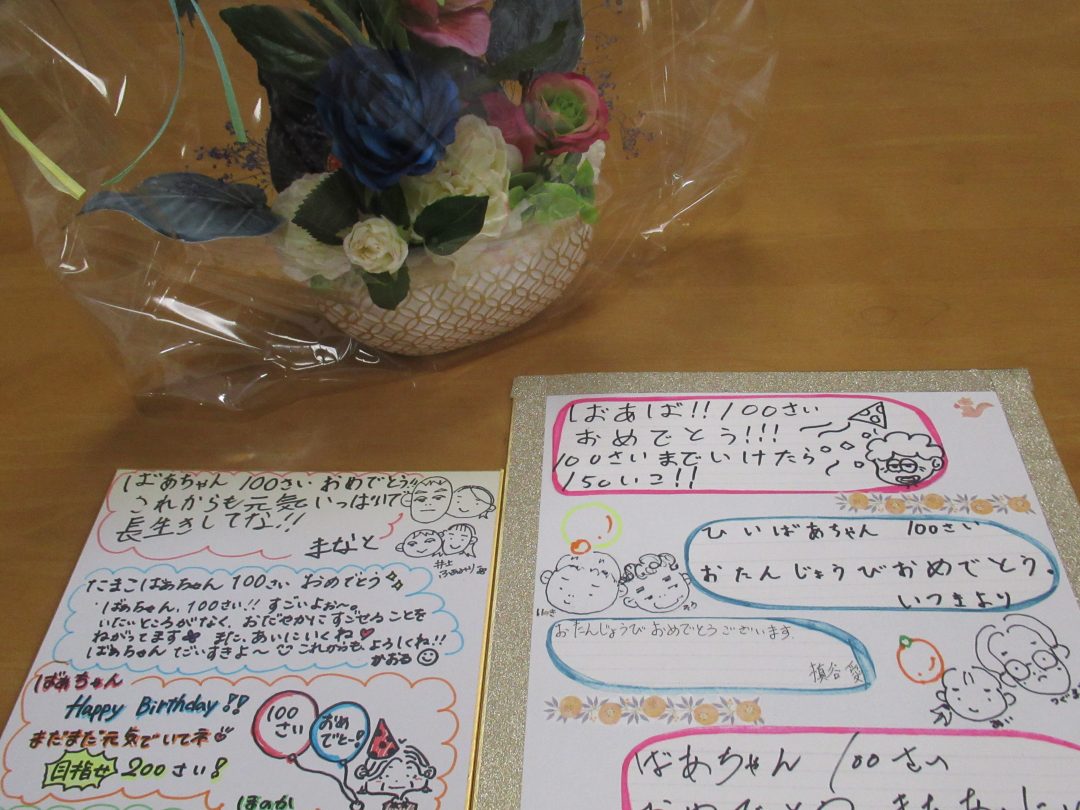 ばあちゃん 100さい おめでとう!!
これからも元気いっぱいで
長生きしてな!!
まなと
たまこばあちゃん 100さい おめでとう
ばあちゃん、100さい!! すごいよぉ〜。
いたいところがなく、おだやかにすごせることを
ねがってます また、あいにいくね
ばあちゃん だいすきよ〜 これからも、よろしくね!!
かおる
ばあちゃん
Happy Birthday!!
まだまだ元気でいてネ
目指せ 200さい!
100
さい
おめ
でとー!
ほのか
ばあば!!100さい
おめでとう!!!
100さいまでいけたら
150いこ!!
ひいばあちゃん 100さい
おたんじょうびおめでとう。
いつきより
おたんじょうび おめでとうございます。
槙谷 愛
ばあちゃん 100さい